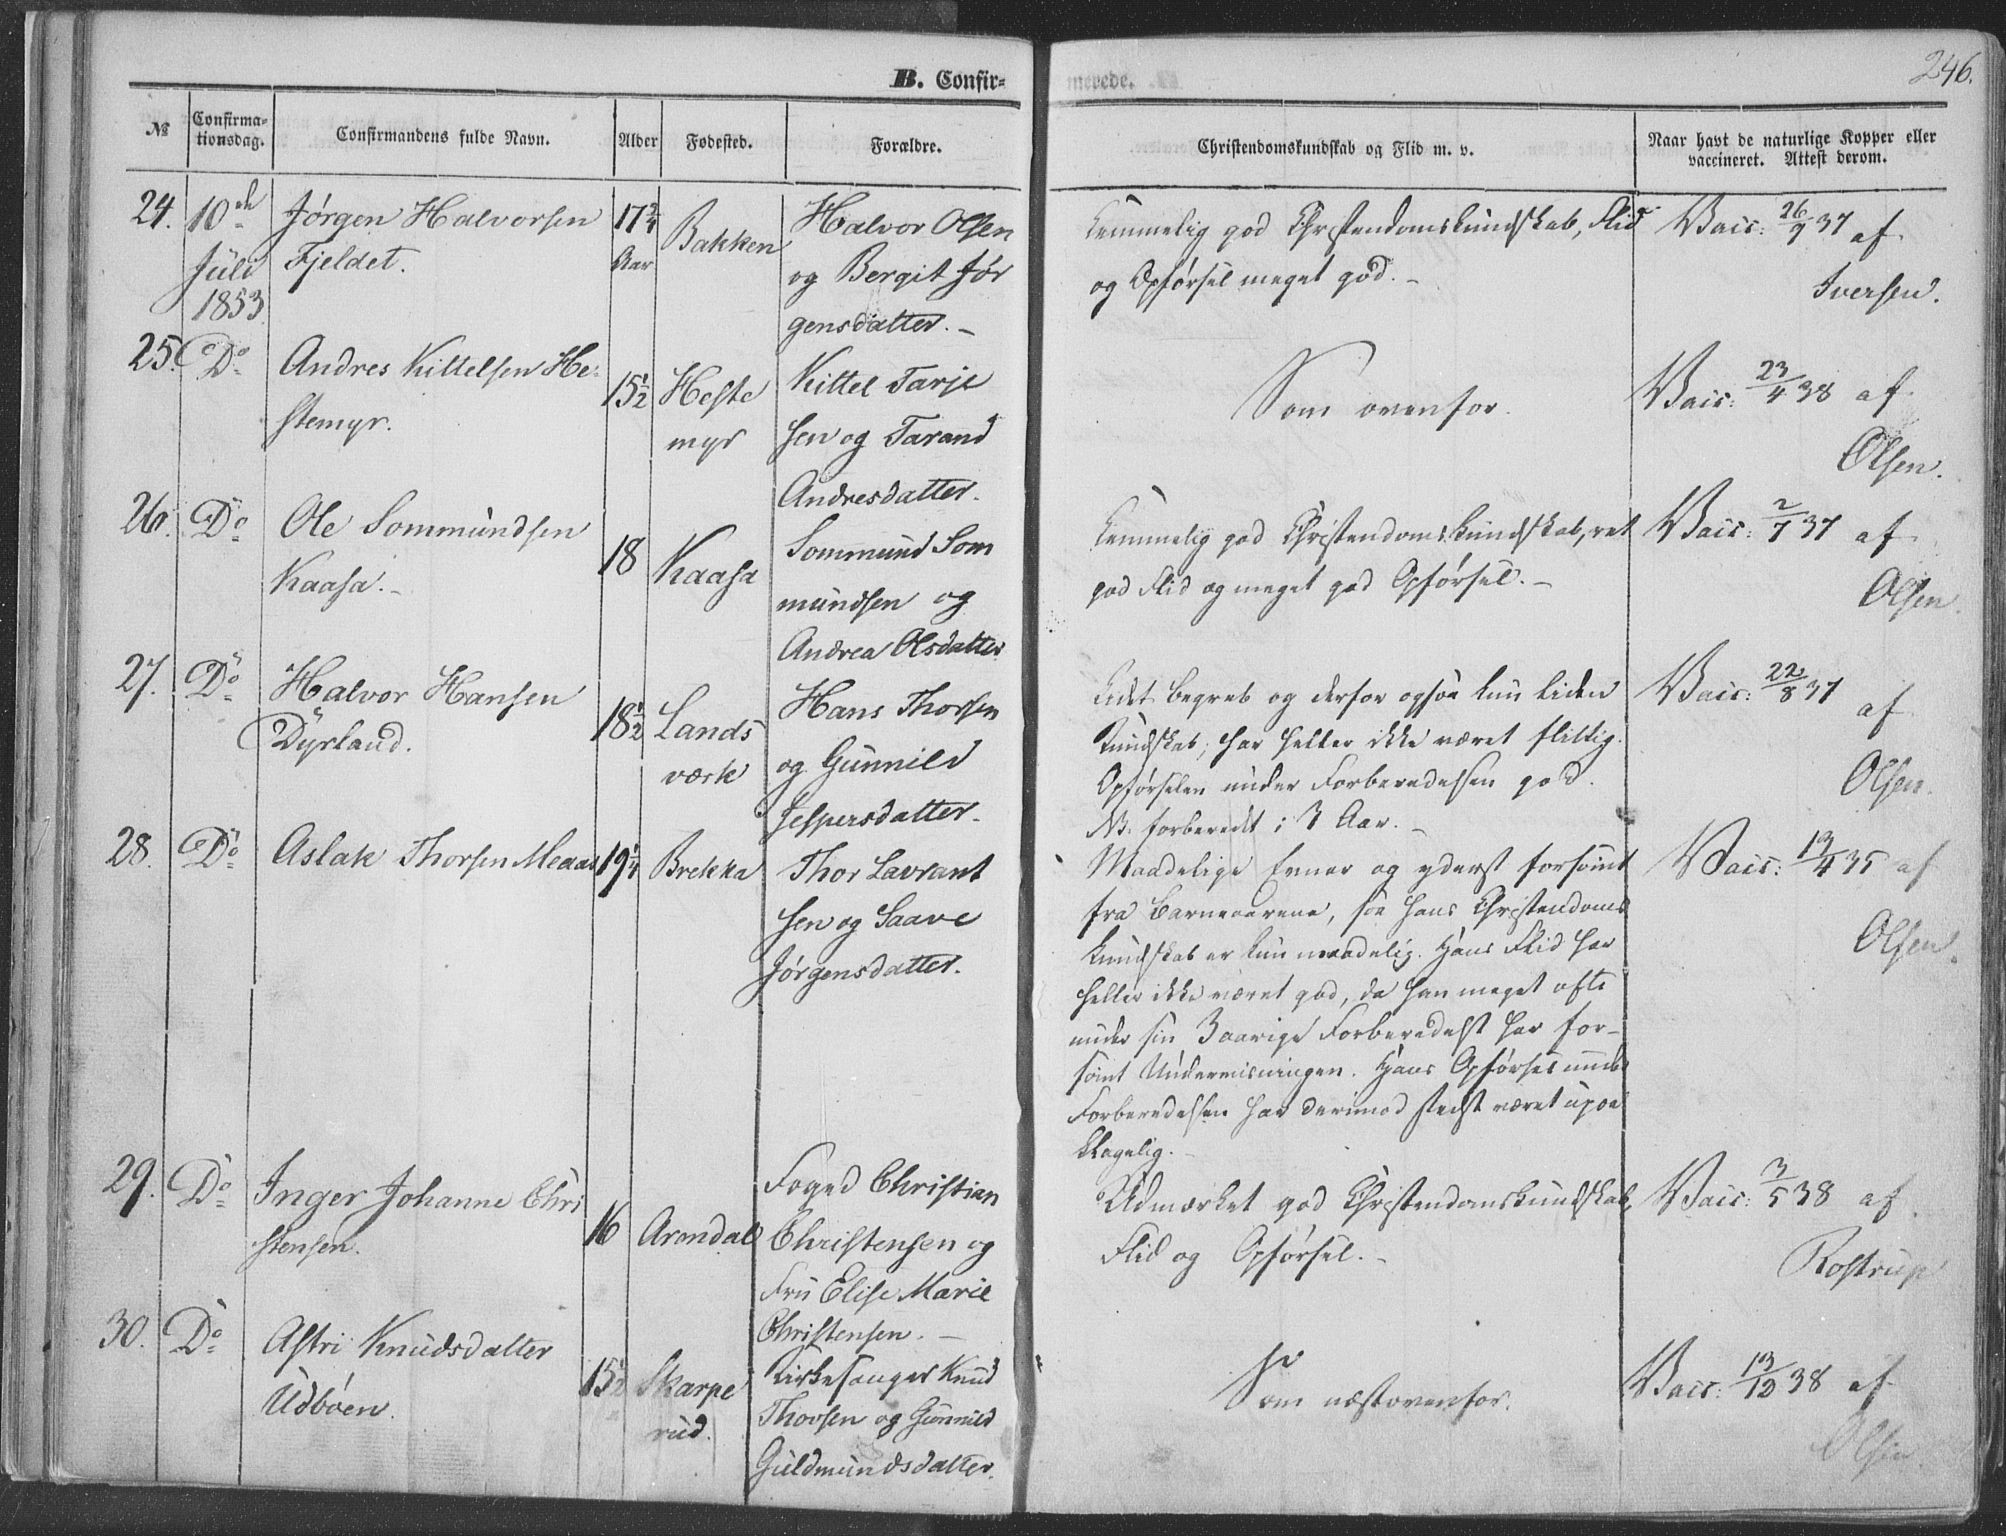 246.
B. Confir-
merede.
№
Confirma-
tionsdag.
Confirmandens fulde Navn.
Alder
Fødested.
Forældre.
Christendomskundskab og Flid m. v.
Naar havt de naturlige Kopper eller
vaccineret. Attest derom.
24.
10de
Juli
1853
Jørgen Halvorsen
Fjeldet.
17 3/4
Aar
Bakken
Halvor Olsen
og Bergit Jør
gensdatter. –
Temmelig god Christendomskundskab, Flid
og Opførsel meget god. –
Vacc: 26/7 37 af
Iversen.
25.
Do
Andres Kittelsen He-
stemyr.
15 1/2
Heste
myr
Kittel Tarje
sen og Tarand
Andresdatter.
Som ovenfor.
Vacc: 23/4 38 af
Olsen.
26.
Do
Ole Sommundsen
Kaasa. –
18
Kaasa
Sommund Som
mundsen og
Andrea Olsdatter
Temmelig god Christendomskundskab, ret
god Flid og meget god Opførsel. –
Vacc: 2/7 37 af
Olsen.
27.
Do
Halvor Hansen
Dyrland.
18 1/2
Lands
værk
Hans Thorsen
og Gunnild
Jespersdatter.
Lidt Begreb og derfor ogsaa kun liden
Kundskab; har heller ikke været flittig.
Opførselen under Forberedelsen god.
NB. forberedt i 3 Aar. –
Vacc: 22/8 37
af
Olsen.
28.
Do
Aslak Thorsen Meaas
19 1/4
Brekka
Thor Lavrant
sen og Saave
Jørgensdatter.
Maadelige Evner og yderst forsømt
fra Barneaarene, saa hans Christendoms
kundskab er kun maadelig. Hans Flid har
heller ikke været god, da han meget ofte
under sin 3aarige Forberedelse har for-
sømt Underviisningen. Hans Opførsel under
Forberedelsen har derimod stedse været upaa
klagelig. –
Vacc: 13/4 35 af
Olsen.
29.
Do
Inger Johanne Chri
stensen.
16
Arendal
Foged Christian
Christensen og
Fru Elise Marie
Christensen. –
Udmærket god Christendomskundskab,
Flid og Opførsel. –
Vacc: 3/5 38 af
Rostrup
30.
Do
Astri Knudsdatter
Udbøen.
15 1/2
Skarpe
rud.
Kirkesanger Knud
Thovsen og Gunnild
Guldmundsdatter.
Som næstovenfor.
Vacc: 13/12 38 af
Olsen.